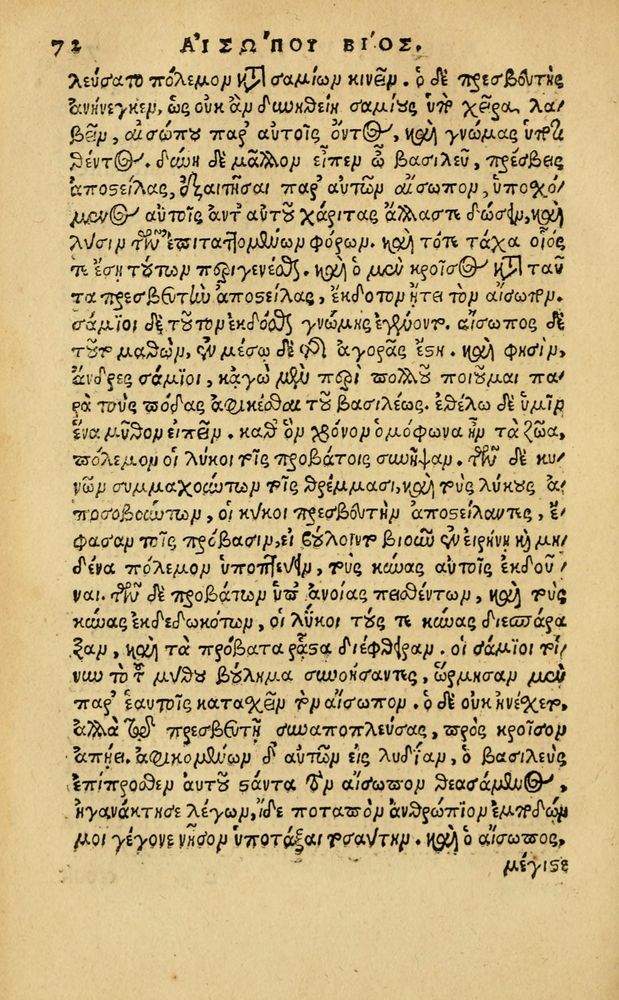 72 ΑΙΣΩΠΟΥ ΒΙΟΣ.
λεύσατο πόλεμον κατὰ σαμίων κινεῖν. ὁ δὲ πρεσβευτὴς
ἀνήνεγκεν, ὡς οὐκ ἂν δυνηθείη σαμίους ὑπὸ χεῖρα λα-
βεῖν, αἰσώπου παρ' αὐτοῖς ὄντος, καὶ γνώμας ὑποτι-
θέντος. δύνῃ δὲ μᾶλλον εἶπεν ὦ βασιλεῦ, πρέσβεις
ἀποστείλας, ἐξαιτῆσαι παρ' αὐτῶν αἴσωπον, ὑποσχό-
μενος αὐτοῖς ἀντ' αὐτοῦ χάριτας ἄλλας τε δώσειν, καὶ
λύσιν τῶν ἐπιταττομένων φόρων. καὶ τότε τάχα οἷός
τε ἔσῃ τούτων περιγενέσθαι. καὶ ὁ μὲν κροῖσος κατὰ ταῦ-
τα πρεσβευτὴν ἀποστείλας, ἔκδοτον ᾔτει τὸν αἴσωπον.
σάμιοι δὲ τοῦτον ἐκδόσθαι γνώμης ἐγένοντο. αἴσωπος δὲ
τοῦτο μαθὼν, ἐν μέσῳ δὲ τῆς ἀγορᾶς ἔστη. καὶ φησὶν,
ἄνδρες σάμιοι, κἀγὼ μὲν περὶ πολλοῦ ποιοῦμαι πα-
ρὰ τοὺς πόδας ἀφικέσθαι τοῦ βασιλέως. ἐθέλω δὲ ὑμῖν
ἕνα μῦθον εἰπεῖν. καθ' ὃν χρόνον ὁμόφωνα ἦν τὰ ζῶα,
πόλεμον οἱ λύκοι τοῖς προβάτοις συνῆψαν. τῶν δὲ κυ-
νῶν συμμαχούντων τοῖς θρέμμασι, καὶ τοὺς λύκους ἀ-
ποσοβούντων, οἱ λύκοι πρεσβευτὴν ἀποστείλαντες, ἔ-
φασαν τοῖς πρόβασιν, εἰ βούλοιντο βιοῦν ἐν εἰρήνῃ καὶ μη-
δένα πόλεμον ὑποπτεύειν, τοὺς κύνας αὐτοῖς ἐκδοῦ-
ναι. τῶν δὲ προβάτων ὑπ' ἀνοίας πεισθέντων, καὶ τοὺς
κύνας ἐκδεδωκότων, οἱ λύκοι τούς τε κύνας διεσπάρα-
ξαν, καὶ τὰ πρόβατα ῥᾷστα διέφθειραν. οἱ σάμιοι τοί-
νυν τὸ τοῦ μύθου βούλημα συννοήσαντες, ὥρμησαν μὲν
παρ' ἑαυτοῖς κατασχεῖν τὸν αἴσωπον. ὁ δὲ οὐκ ἠνέσχετο,
ἀλλὰ τῷ πρεσβευτῇ συναποπλεύσας, πρὸς κροῖσον
ἀπῄει. ἀφικομένων δ' αὐτῶν εἰς λυδίαν, ὁ βασιλεὺς
ἐπίπροσθεν αὐτοῦ στάντα τὸν αἴσωπον θεασάμενος,
ἠγανάκτησε λέγων, ἴδε ποταπὸν ἀνθρώπιον ἐμποδών
μοι γέγονε νῆσον ὑποτάξαι τοσαύτην. καὶ ὁ αἴσωπος,
μέγιστε